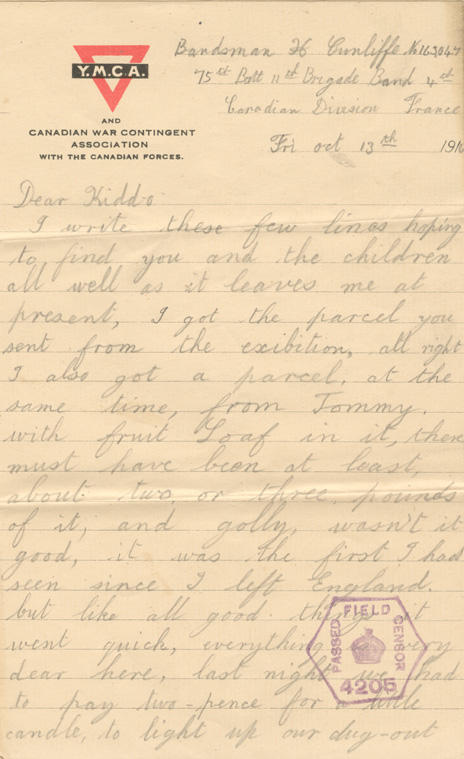 Y.M.C.A.
AND
CANADIAN WAR CONTINGENT
ASSOCIATION
WITH THE CANADIAN FORCES.
Bandsman H Cunliffe
75th Batt 11th Brigade Band 4th
Canadian Division France
Fri oct 13th 191
Dear Kiddo
I write these few lines hoping
to find you and the children
all well as it leaves me at
present, I got the parcel you
sent from the exibition, all right
I also got a parcel, at the
same time, from Tommy.
with fruit Loaf in it, there
must have been at least,
about two, or three, pounds
of it, and golly, wasn't it
good, it was the first I had
seen since I left England.
but like all good things it
went quick, everything is very
dear here, last night we had
to pay two-pence for a little
candle, to light up our dug-out
PASSED FIELD CENSOR
4205